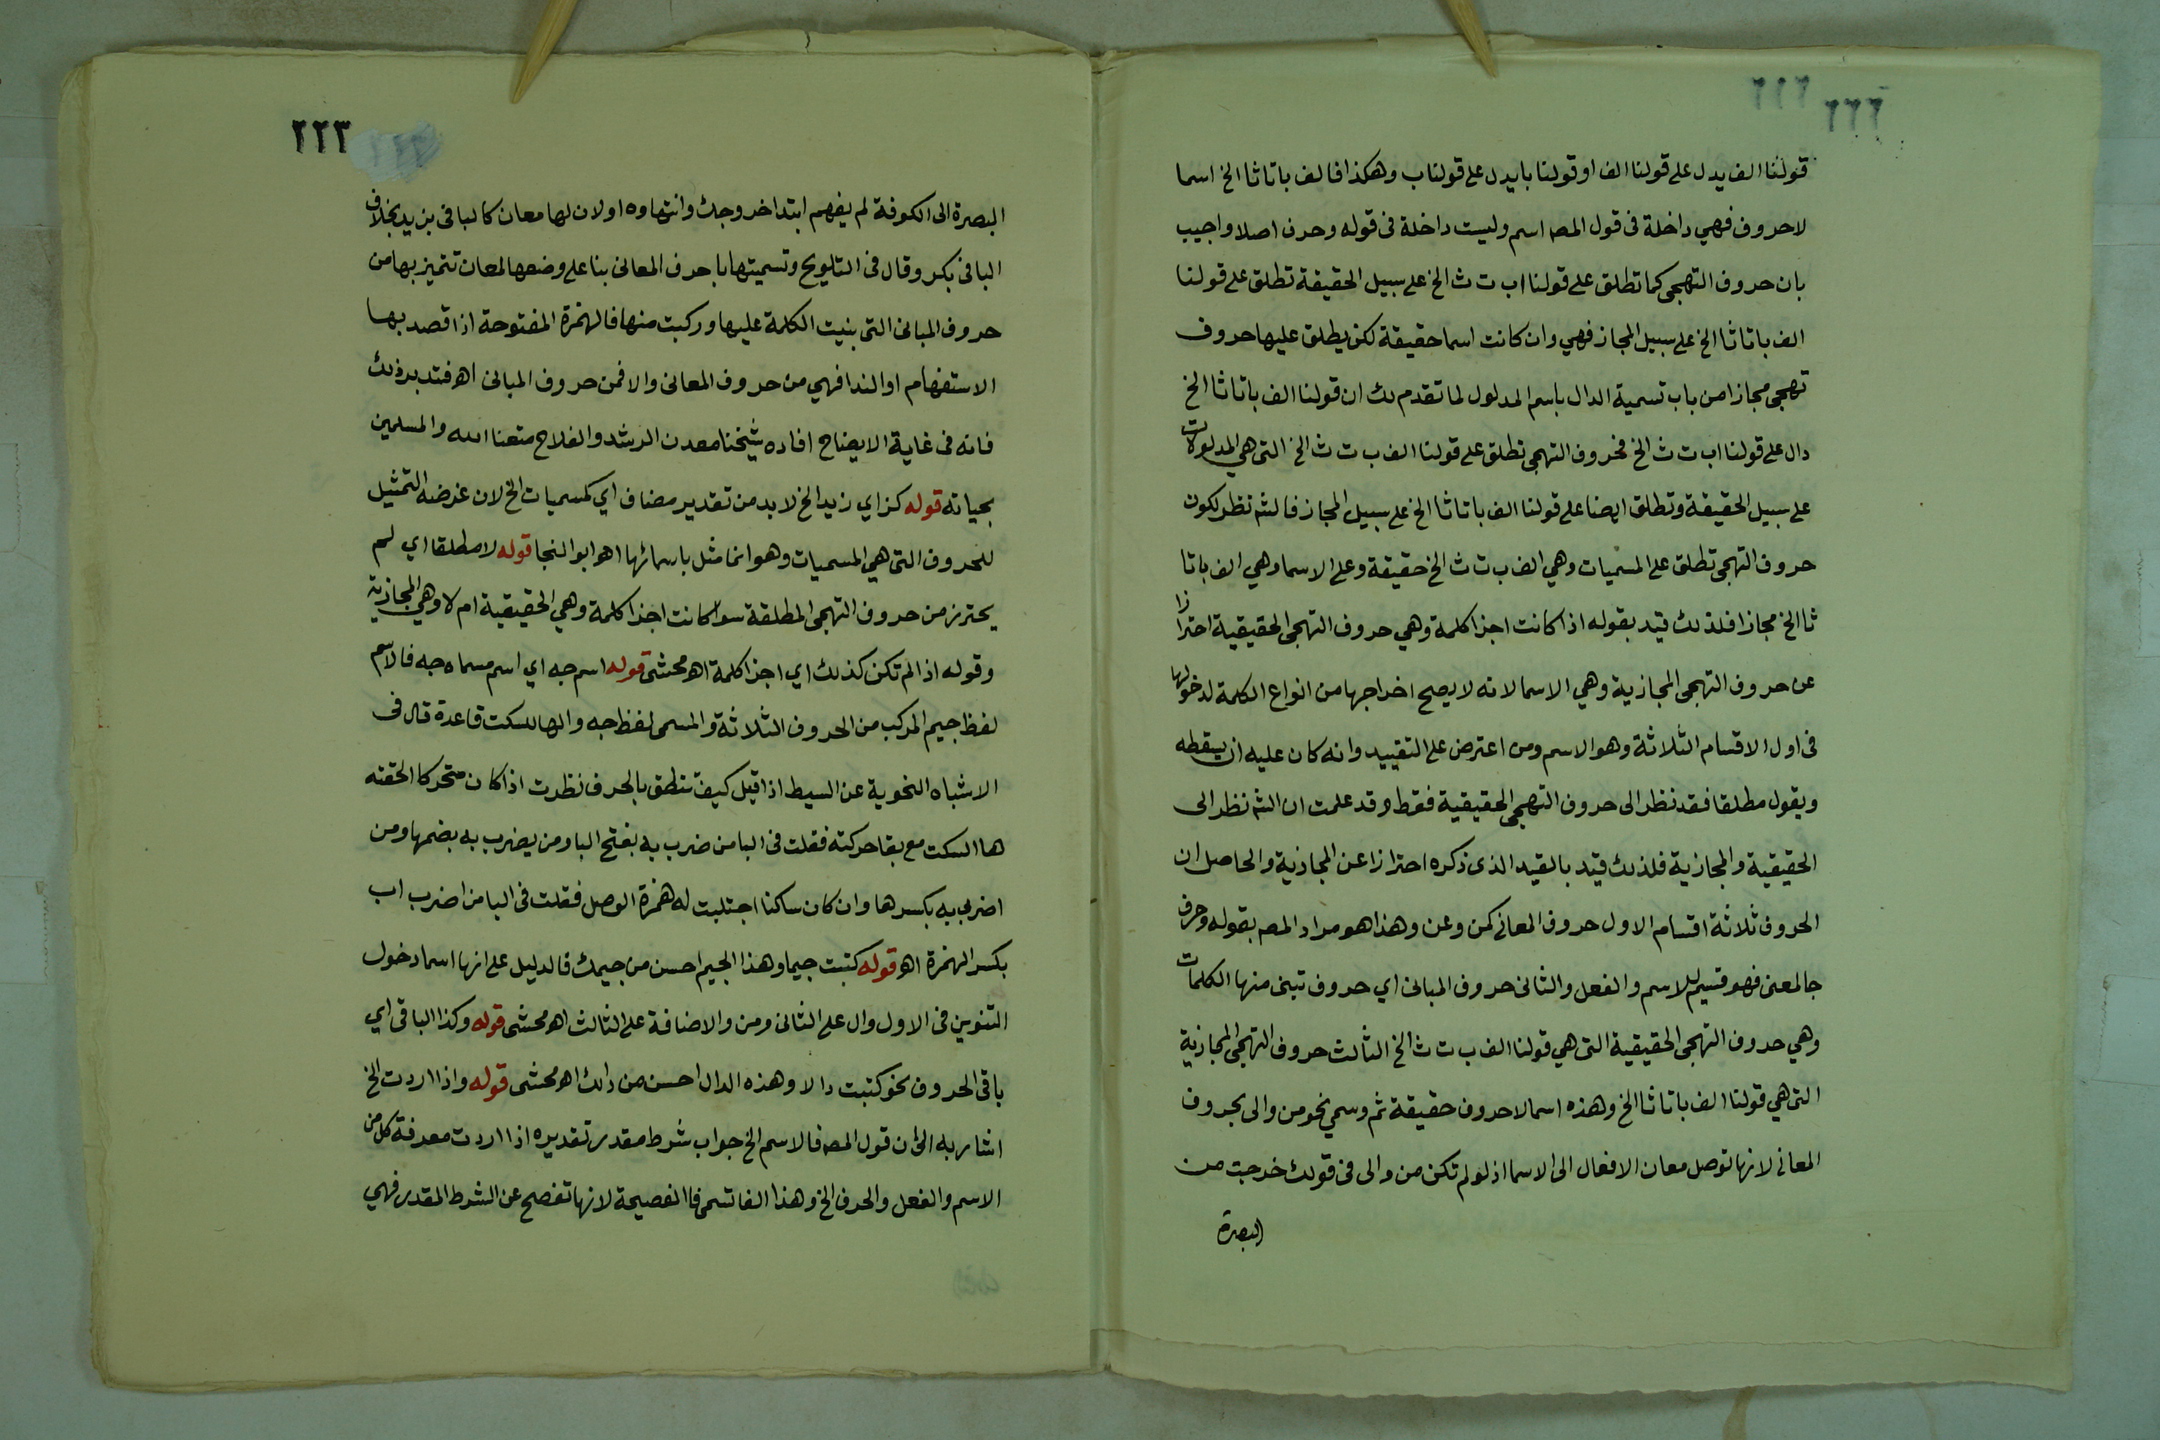 ٢٢٢
قولنا الف يدل على قولنا الف او قولنا با يدل على قولنا ب وهكذا فالف با تا ثا الخ اسما
لا حروف فهي داخلة فى قول المصه اسم وليست داخلة فى قوله وحرف اصلا واجيب
بان حروف التهجى كما تطلق على قولنا اب ت ث الخ على سبيل الحقيقة تطلق على قولنا
الف با تا ثا الخ على سبيل المجاز فهي وان كانت اسما حقيقة لكن يطلق عليها حروف
تهجى مجازا من باب تسمية الدال باسم المدلول لما تقدم لك ان قولنا الف با تا ثا الخ
دال على قولنا اب ت ث الخ فحروف التهجى تطلق على قولنا الف ب ت ث الخ التى هي المدلولات
على سبيل الحقيقة وتطلق ايضا على قولنا الف با تا ثا الخ على سبيل المجاز فالشه نظر لكون
حروف التهجى تطلق على المسميات وهي الف ب ت ث الخ حقيقة وعلى الاسما وهي الف با تا
ثا الخ مجازا فلذلك قيد بقوله اذا كانت اجزا كلمة وهي حروف التهجى الحقيقية احترازا
عن حروف التهجى المجازية وهي الاسما لانه لا يصح اخراجها من انواع الكلمة لدخولها
فى اول الاقسام الثلاثة وهو الاسم ومن اعترض على التقييد وانه كان عليه ان يسقطه
ويقول مطلقا فقد نظر الى حروف التهجى الحقيقية فقط وقد علمت ان الشه نظر الى
الحقيقية والمجازية فلذلك قيد بالقيد الذى ذكره احترازا عن المجازية والحاصل ان
الحروف ثلاثة اقسام الاول حروف المعانى كمن وعن وهذا هو مراد المصه بقوله وحرف
جا لمعنى فهو قسيم للاسم والفعل والثانى حروف المبانى اي حروف تبنى منها الكلمات
وهي حروف التهجى الحقيقية التى هي قولنا الف ب ت ث الخ الثالث حروف التهجى المجازية
التى هي قولنا الف با تا ثا الخ وهذه اسما لا حروف حقيقة ثم وسمي نحو من والى بحروف
المعانى لانها توصل معان الافعال الى الاسما اذ لو لم تكن من والى فى قولك خرجت من
البصرة
٢٢٣
البصرة الى الكوفة لم يفهم ابتدا خروجك وانتهاوه او لان لها معان كالبا فى بزيد بخلاف
البا فى بكر وقال فى التلويح وتسميتها باحرف المعانى بنا على وضعها لمعان تتميز بها من
حروف المبانى التى بنيت الكلمة عليها وركبت منها فالهمزة المفتوحة اذا قصد بها
الاستفهام او الندا فهي من حروف المعانى والا فمن حروف المبانى اهـ فتدبر ذلك
فانه فى غاية الايضاح افاده شيخنا معدن الرشد والفلاح متعنا الله والمسلمين
بحياته قوله كزاي زيد الخ لا بد من تقدير مضاف اي كمسميات الخ لان غرضه التمثيل
للحروف التى هي المسميات وهو انما مثل باسمائها اهـ ابو النجا قوله لا مطلقا اي لم
يحترز من حروف التهجى المطلقة سوا كانت اجزا كلمة وهي الحقيقية ام لا وهي المجازية
وقوله اذا لم تكن كذلك اي اجزا كلمة اهـ محشى قوله اسم جه اي اسم مسماه جه فالاسم
لفظ جيم المركب من الحروف الثلاثة والمسمى لفظ جه والها للسكت قاعدة قال فى
الاشباه النحوية عن البسيط اذا قيل كيف تنطق بالحرف نظرت اذا كان متحركا الحقته
ها السكت مع بقا حركته فقلت فى البا من ضرب به بفتح البا ومن يضرب به بضمها ومن
اضرب به بكسرها وان كان ساكنا اجتلبت له همزة الوصل فقلت فى البا من اضرب اب
بكسر الهمزة اهـ قوله كتبت جيما وهذا الجيم احسن من جيمك فالدليل على انها اسما دخول
التنوين فى الاول وال على الثانى ومن والاضافة على الثالث اهـ محشى قوله وكذا الباقى اي
باقى الحروف نحو كتبت دالا وهذه الدال احسن من دالك اهـ محشى قوله واذا اردت الخ
اشار به الى ان قول المصه فالاسم الخ جواب شرط مقدر تقديره اذا اردت معرفة كل من
الاسم والفعل والحرف الخ وهذا الفا تسمى فا الفصيحة لانها تفصح عن الشرط المقدر فهي